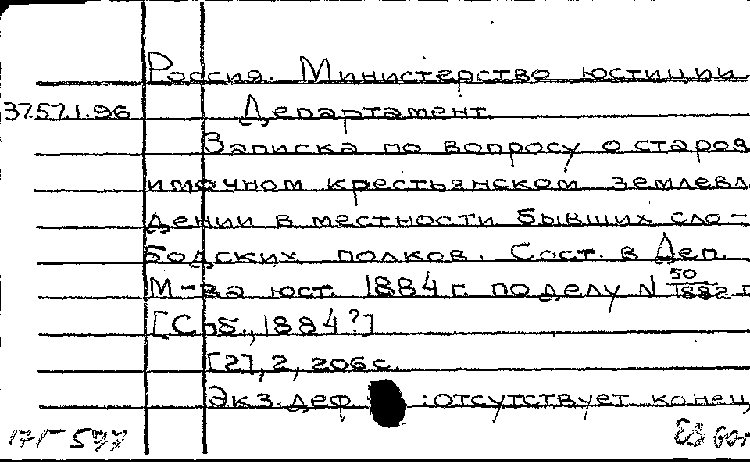 Россия. Министерство юстиции
37.57.1.96 Департамент.
Записка по вопросу о староза
имочном крестьянском землевл
дении в местности бывших сло-
бодских полков. Сост. в Деп.
М-ва юст. 1884 г. по делу N 50/1882 г
[Спб., 1884?]
[2], 2, 206 с.
Экз. деф. : отсутствует конец
171-577